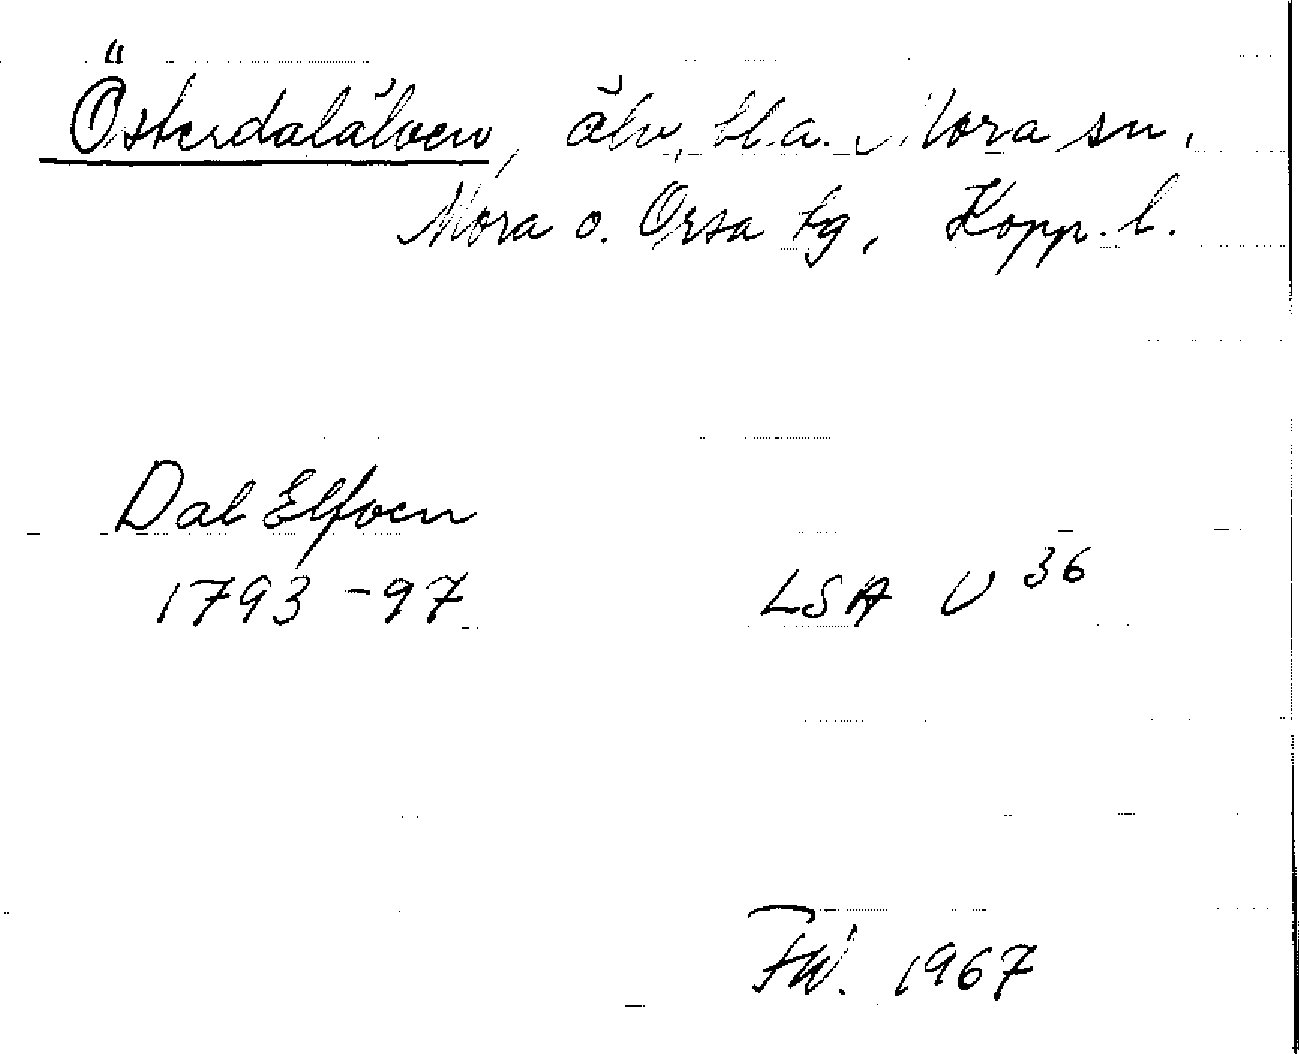 Österdalälven, älv, bl.a. Mora sn,
Mora o. Orsa tg, Kopp. l.
Dal Elfven
1793-97 LSA U 36
FW. 1967